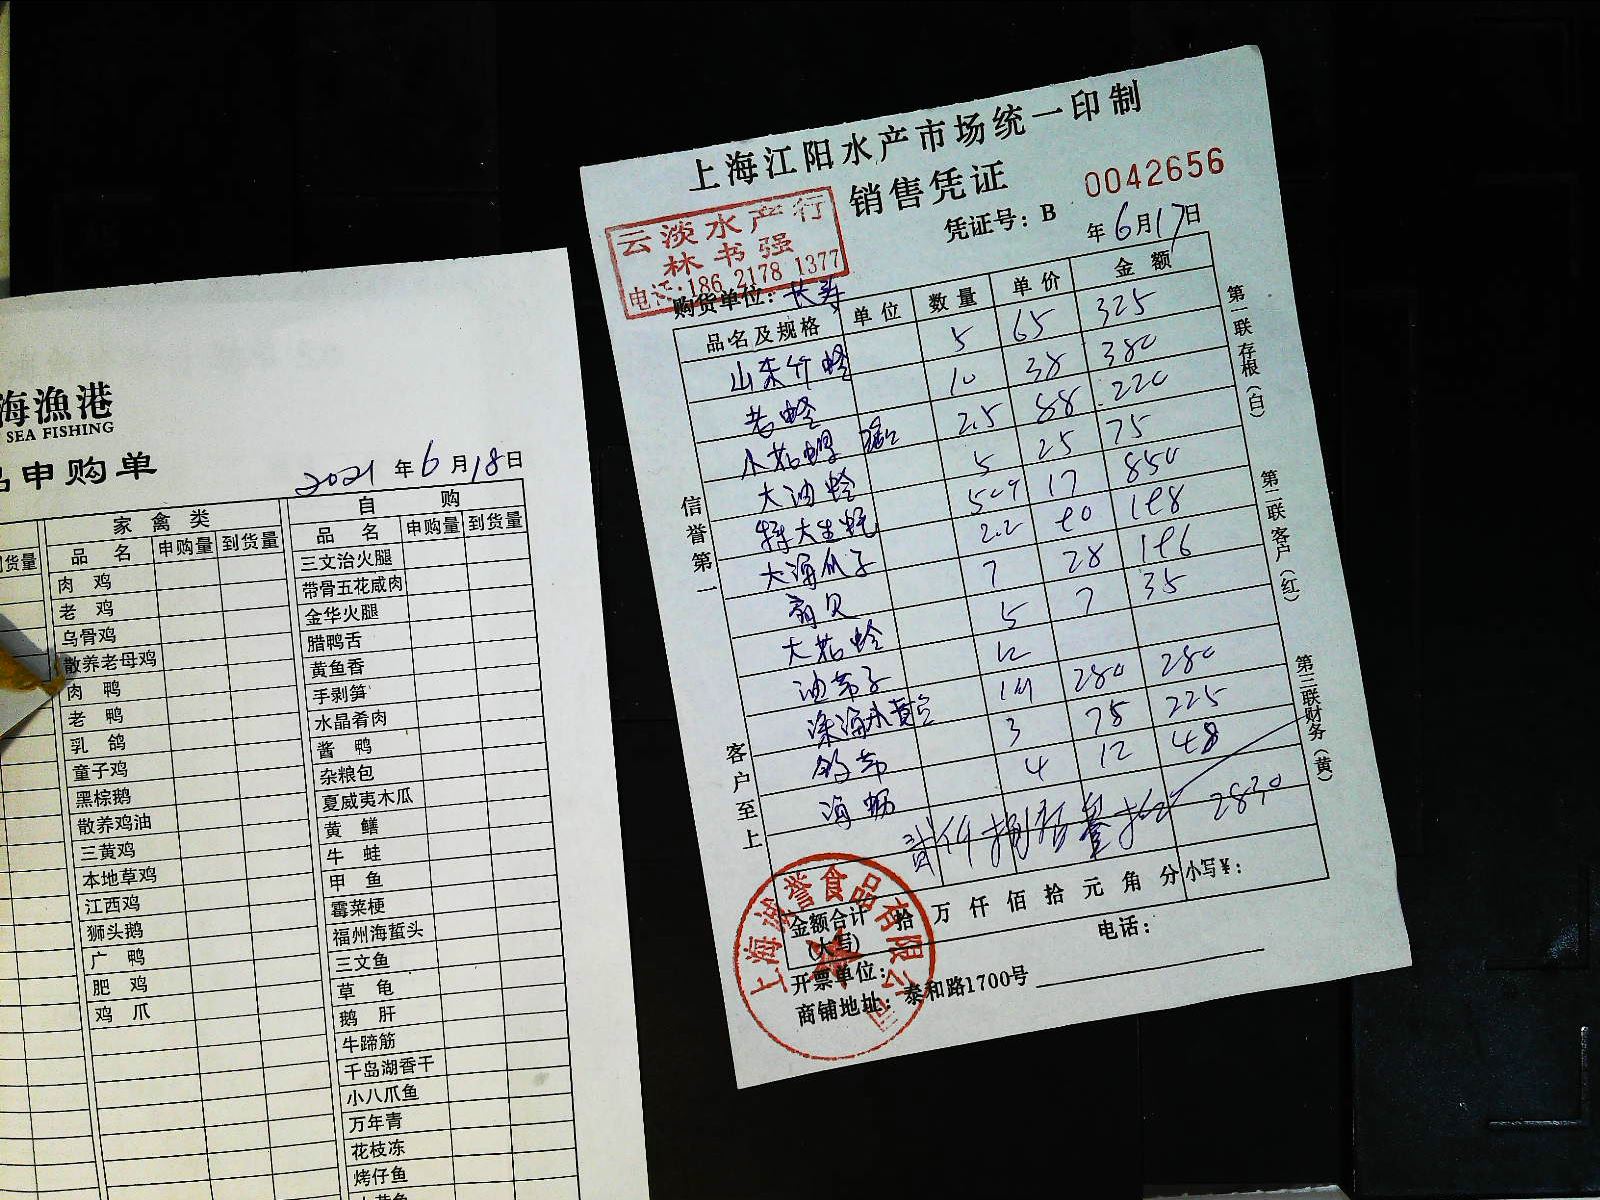 海漁港
SEA FISHING
品申购单
2021年6月18日
家禽类 自购
到货量 品名 申购量 到货量 品名 申购量 到货量
肉鸡 三文治火腿
老鸡 带骨五花咸肉
乌骨鸡 金华火腿
散养老母鸡 腊鸭舌
肉鸭 黄鱼香
老鸭 手剥笋
乳鸽 水晶肴肉
童子鸡 酱鸭
黑棕鹅 杂粮包
散养鸡油 夏威夷木瓜
三黄鸡 黄鳝
本地草鸡 牛蛙
江西鸡 甲鱼
狮头鹅 霉菜梗
广鸭 福州海蜇头
肥鸡 三文鱼
鸡爪 草龟
鹅肝
牛蹄筋
千岛湖香干
小八爪鱼
万年青
花枝冻
烤仔鱼
上海江阳水产市场统一印制
销售凭证
0042656
凭证号：B
年6月17日
云淡水产行
林书强
电话:186 2178 1377
购货单位：长寿
品名及规格 单位 数量 单价 金额
山东竹蛏 5 65 325
老蛏 10 38 380
2.5 88 220
大油蛤 5 25 75
特大生蚝 50个 17 850
大海瓜子 2.2 90 198
扇贝 7 28 196
大花蛤 5 7 35
12
280 280
3 75 225
海蛎 4 12 48
贰仟捌佰叁拾 2830
金额合计（大写） 拾万仟佰拾元角分 小写¥：
开票单位： 电话：
商铺地址：泰和路1700号
信誉第一
客户至上
第一联存根（白）
第二联客户（红）
第三联财务（黄）
上海诚誉食品有限公司